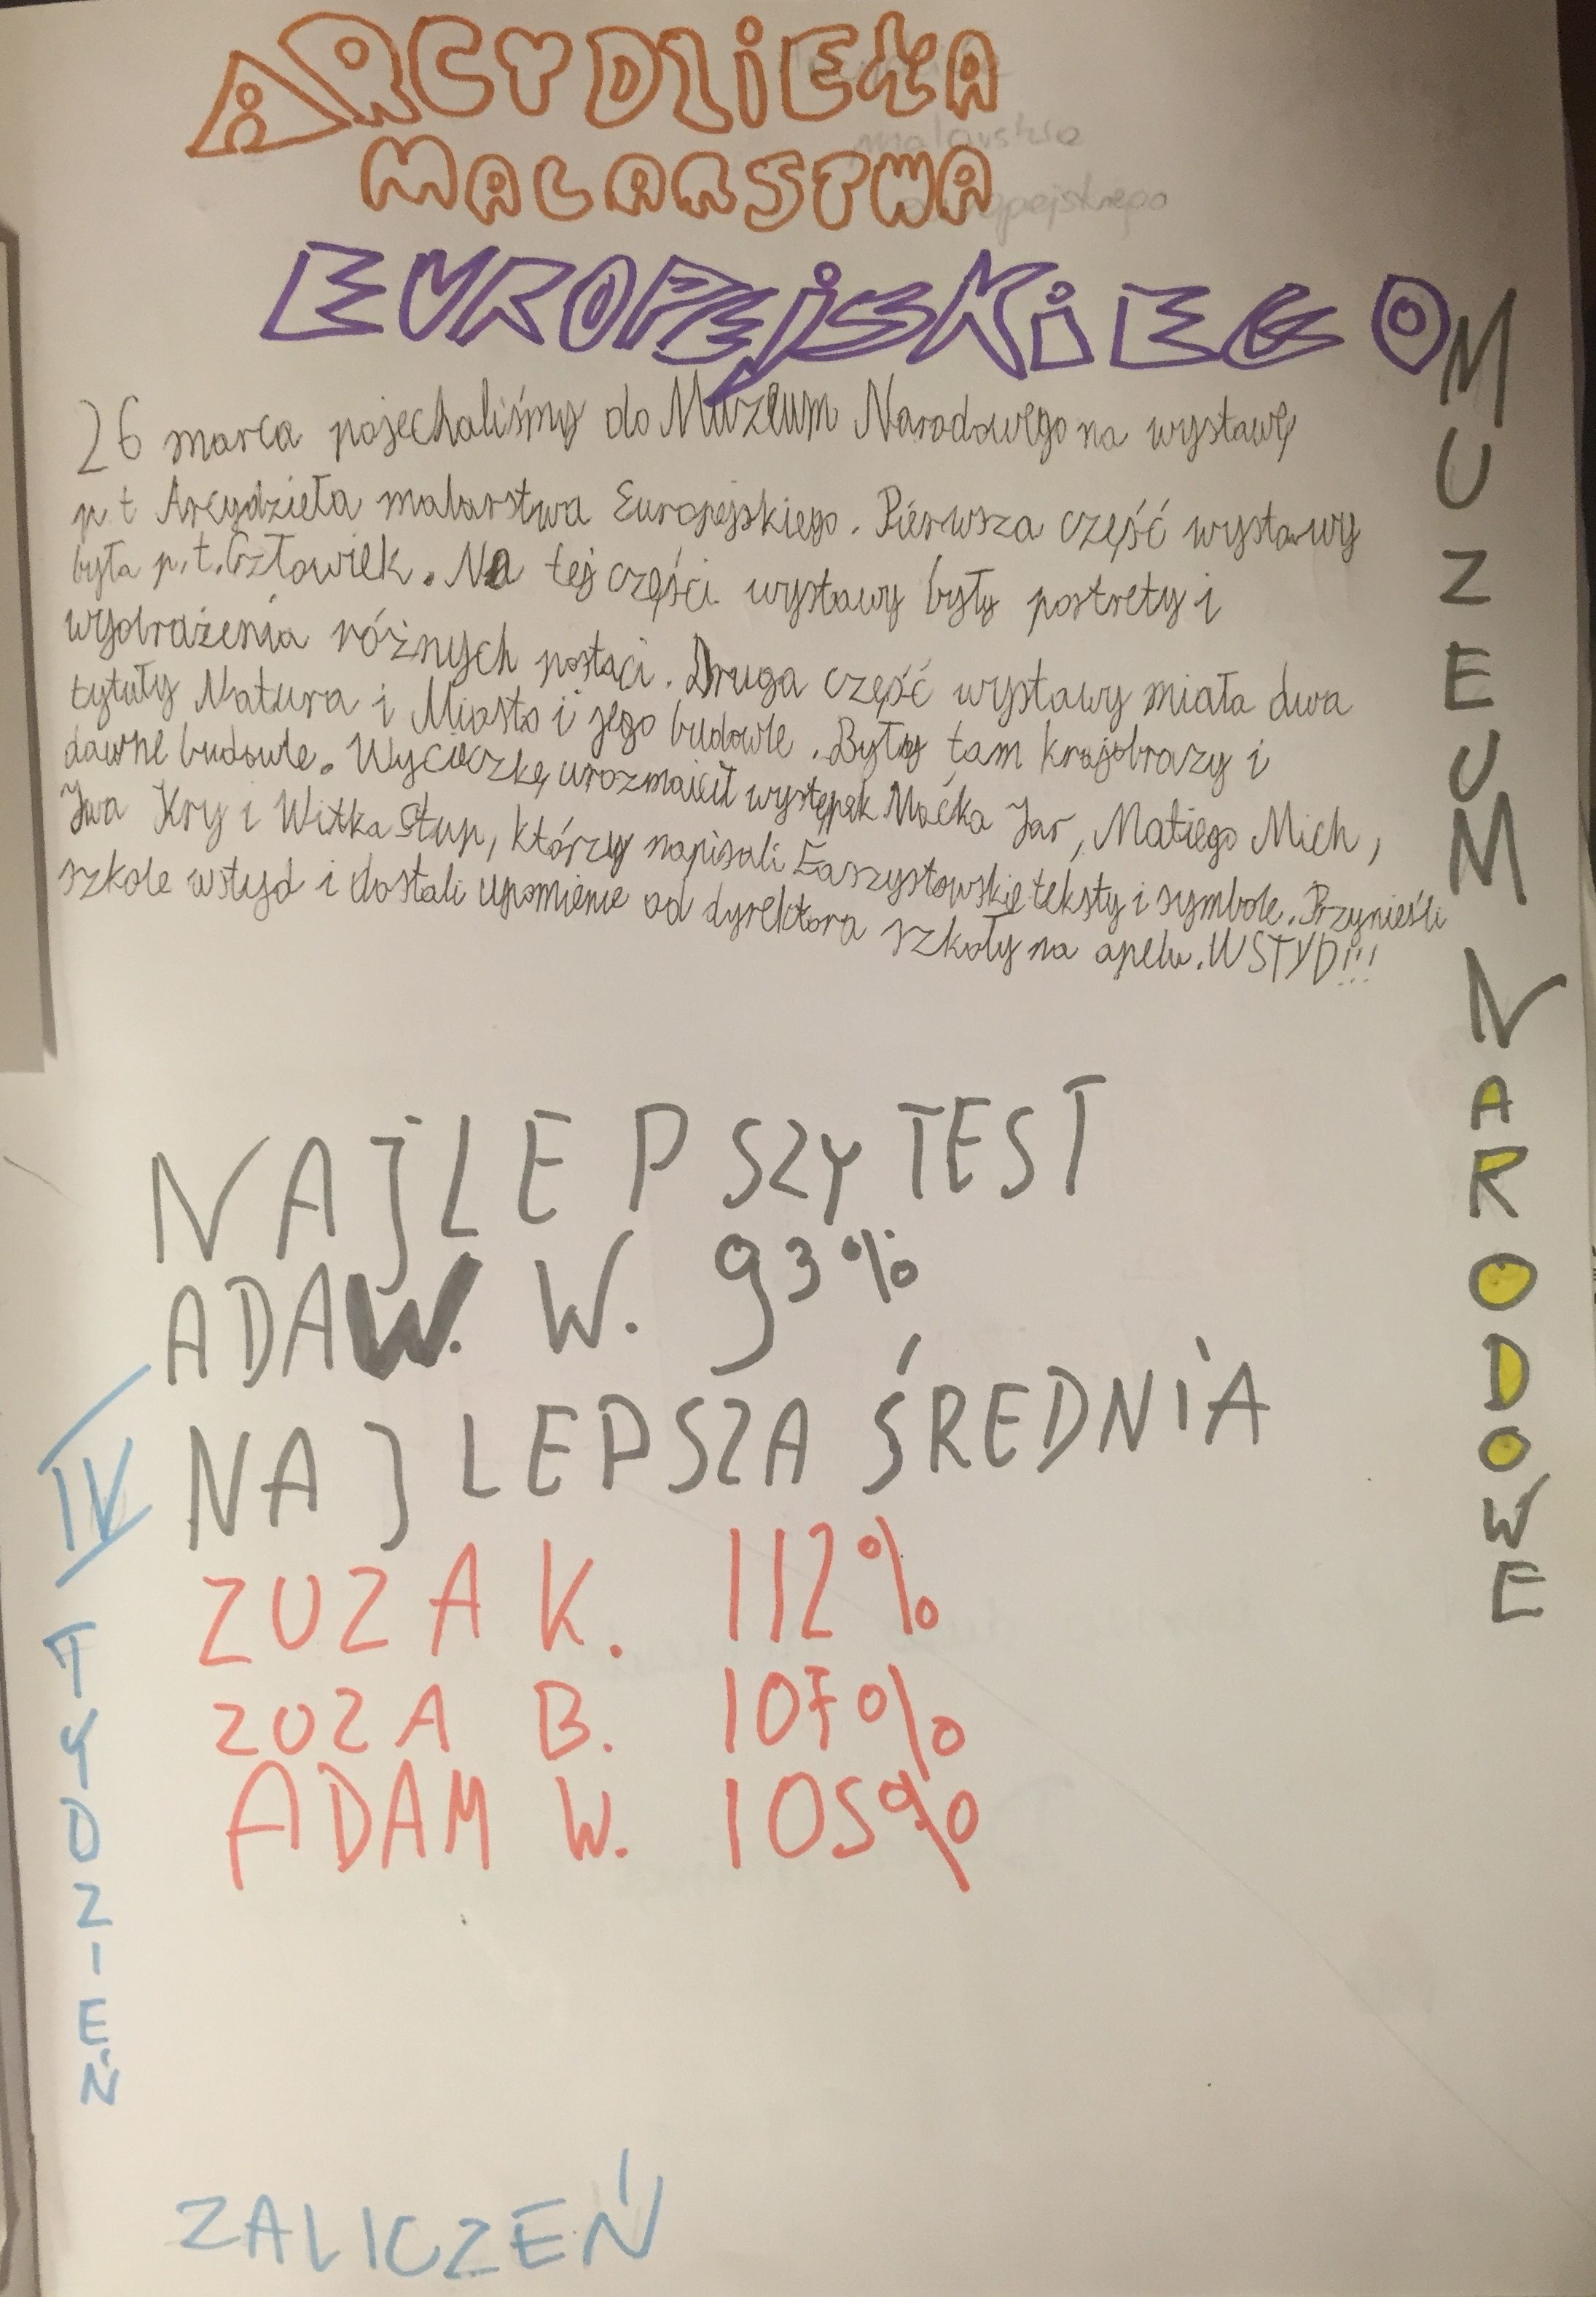 ARCYDZIEŁA
MALARSTWA
EUROPEJSKIEGO
26 marca pojechaliśmy do Muzeum Narodowego na wystawę
p.t Arcydzieła malarstwa Europejskiego. Pierwsza część wystawy
była p.t. Człowiek. Na tej części wystawy były portrety i
wyobrażenia różnych postaci. Druga część wystawy miała dwa
tytuły Natura i Miasto i jego budowle. Były tam krajobrazy i
dawne budowle. Wycieczkę urozmaicił występek Maćka Jar, Matiego Mich,
Iwa Kry i Witka Stup, którzy napisali Faszystowskie teksty i symbole. Przynieśli
szkole wstyd i dostali upomnienie od dyrektora szkoły na apelu. WSTYD!!!
MUZEUM NARODOWE
NAJLEPSZY TEST
ADAW. W. 93%
NAJLEPSZA ŚREDNIA
ZUZA K. 112%
ZUZA B. 107%
ADAM W. 105%
IV TYDZIEŃ
ZALICZEŃ